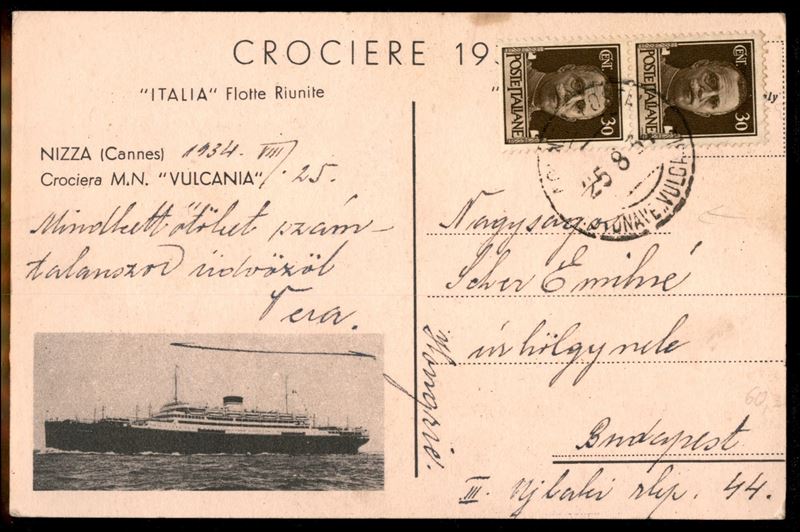 CROCIERE 19
"ITALIA" Flotte Riunite
NIZZA (Cannes) 1934. VIII/25.
Crociera M.N. "VULCANIA"
Mindkettőtöket szám-
talanszor üdvözöl
Vera.
POSTE ITALIANE
CENT. 30
POSTE ITALIANE
CENT. 30
25 8 3
TONAVE "VULC
ly
Nagyságos
Scher Emilné
úrhölgynek
Budapest
III. Ujlaki rkp. 44.
Hongrie.
60,